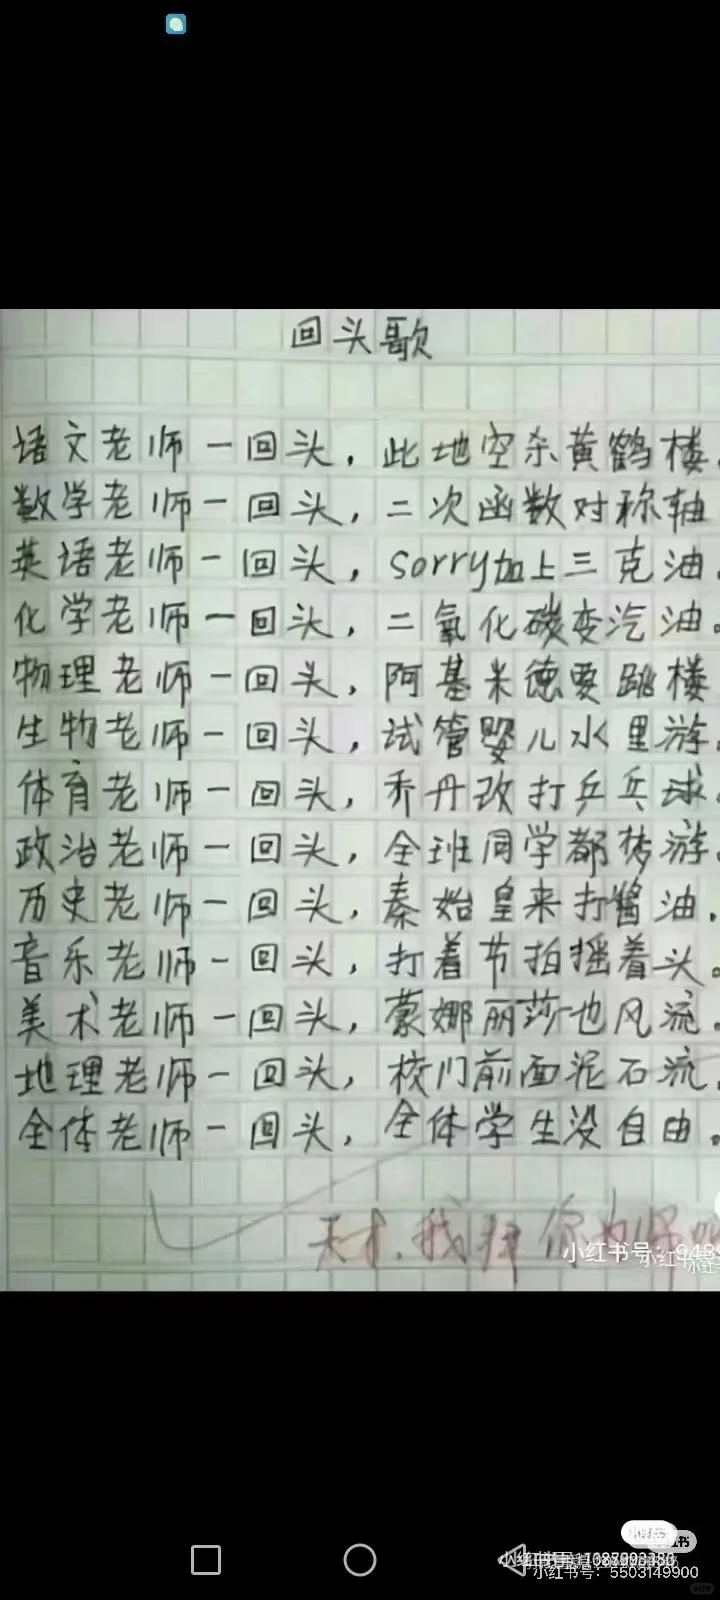 回头歌
语文老师一回头，此地空余黄鹤楼。
数学老师一回头，二次函数对称轴
英语老师一回头，sorry加上三克油。
化学老师一回头，二氧化碳变汽油。
物理老师一回头，阿基米德要跳楼
生物老师一回头，试管婴儿水里游。
体育老师一回头，乔丹改打乒乓球。
政治老师一回头，全班同学都梦游。
历史老师一回头，秦始皇来打酱油.
音乐老师一回头，打着节拍摇着头。
美术老师一回头，蒙娜丽莎也风流。
地理老师一回头，校门前面泥石流。
全体老师一回头，全体学生没自由。
天才.我拜你为师
小红书号：
小红书
小红书号：5503149900